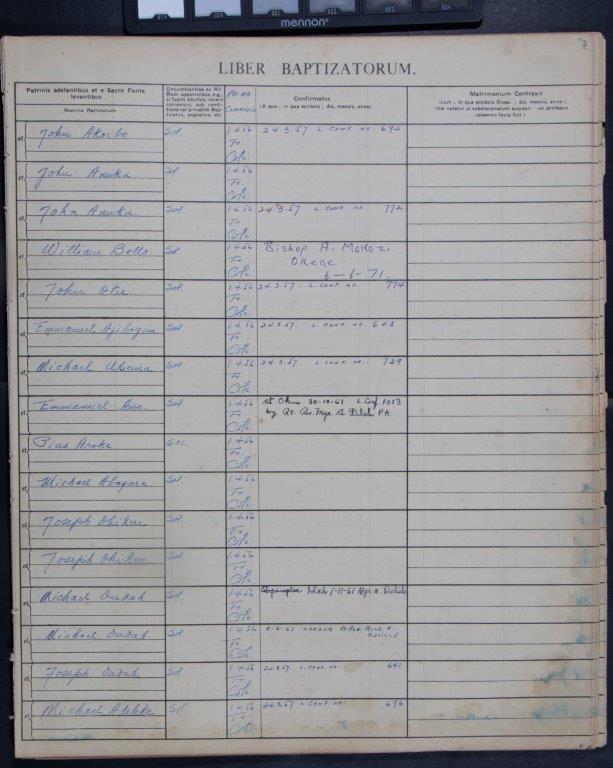 mennon
LIBER BAPTIZATORUM.
Patrinis adstantibus et e Sacro Fonte levantibus
Nomina Patrinorum
Circumstantiae ex Rit. Rom. apponendae, e.g.,
PRIMA
Confirmatus
(A quo ; in qua ecclesia ; die, mensis, anno)
Matrimonium Contraxit
(cum ; in qua ecclesia Dioec. ; die, mensis, anno.)
(Vel notetur si subdiaconatum suscepit vel professio solemnis facta fuit)
et John Akoibo Sol. 1.4.56 Fr. Cofc. 24.3.57 L. CONF. NO 692
et John Anuku Sol 1.4.56 Fr. Cofc.
et John Anuku. Sol. 1.4.56 Fr. Cofc. 24.3.57 L. CONF. NO. 772
et William Bello. Sol 1.4.56 Fr. Cofc. Bishop A. Makozi
OKENE.
6-6-71.
et John Otu Sol. 1.4.56 Fr. Cofc. 24.3.57. L. CONF NO. 774
et Emmanuel Ajibogun Sol. 1.4.56 Fr. Cofc. 24.3.57. L. CONF. NO. 643
et Michael Sol. 1.4.56 Fr. Cofc. 24.3.57. L. CONF. NO. 739
et Emmanuel Aso. Sol. 1.4.56 Fr. Cofc. at Okene 30-10-61 L. Conf. 1013
by Rt. Rev. Mgr. A. Delisle PA
et Pius Aroke SOL. 1.4.56 Fr. Cofc.
et Michael Abayara Sol. 1.4.56 Fr. Cofc.
et Joseph Ohikere Sol. 1.4.56 Fr. Cofc.
et Joseph Ohikere Sol. 1.4.56 Fr. Cofc.
et Michael Oudah Sol. 1.4.56 Fr. Cofc. Idah 1-11-61 Mgr A. Delisle
et Michael Oudah Sol 1.4.56 Fr. Cofc. LOKOJA MGR A.
DELISLE
et Joseph Oudah Sol 1.4.56 Fr. Cofc. 24.3.57. L. CONF. NO. 641
et Michael Adeleke Sol 1.4.56 Fr. Cofc. 24.3.57 L CONF. NO. 696